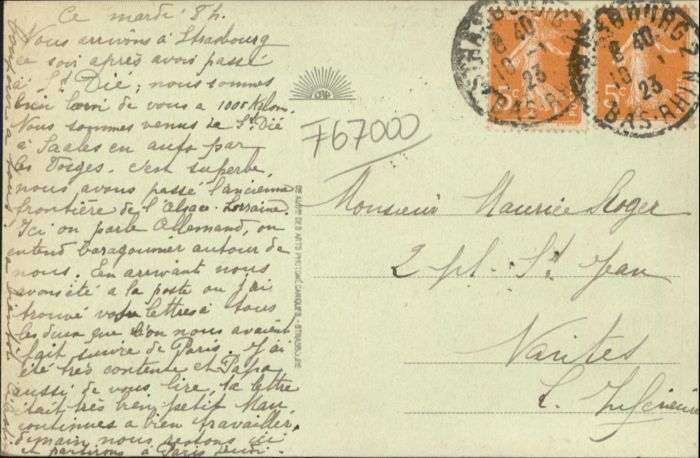 Ce mardi 8h.
Nous arrivons à Strasbourg
ce soir après avoir passé
à St Dié ; nous sommes
bien loin de vous a 1000 Kilom.
Nous sommes venus de St Dié
à Saales en auto par
les Vosges. c'est superbe,
nous avons passé l'ancienne
frontière de l'Alsace-Lorraine.
Ici on parle Allemand, on
entend baragouiner autour de
nous. En arrivant nous
avons été a la poste ou j'ai
trouvé votre lettres à tous
les deux que l'on nous avaient
fait suivre de Paris. J'ai
été très contente et Papa
aussi de vous lire, ta lettre
était très bien petit Mau
continues a bien travailler.
demain nous restons ici
et partirons à Paris
F67000
STRASBOURG
BAS-RHIN
8 40
10 - 1
23
5c
STRASBOURG
BAS-RHIN
8 40
10 - 1
23
5c
Monsieur Maurice Roger
2 pl. St Jean
Nantes
L. Inférieure